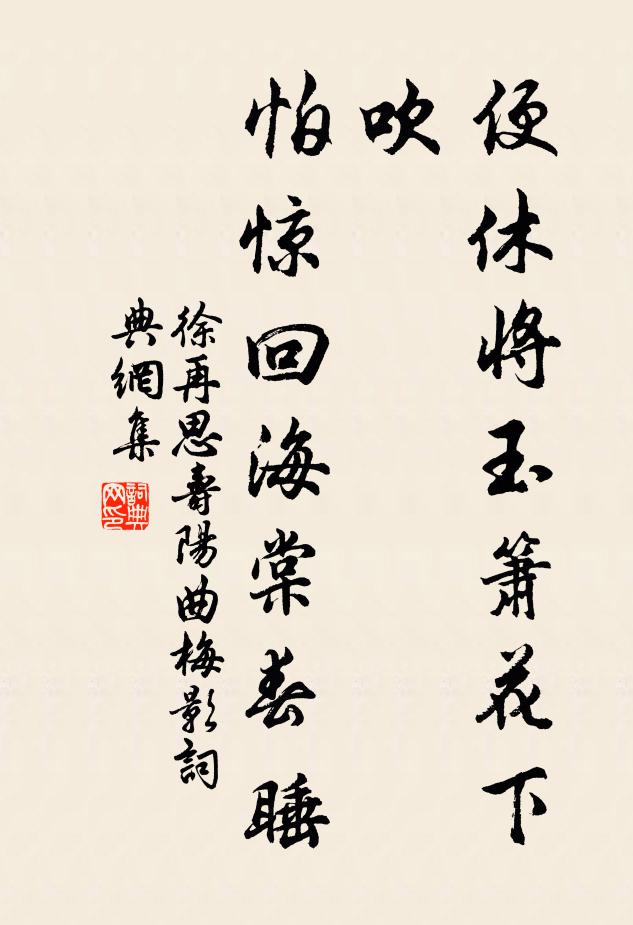 便休将玉箫花下
吹
怕惊回海棠春睡
徐再思壽陽曲梅影詞
典網集
詞典
网印